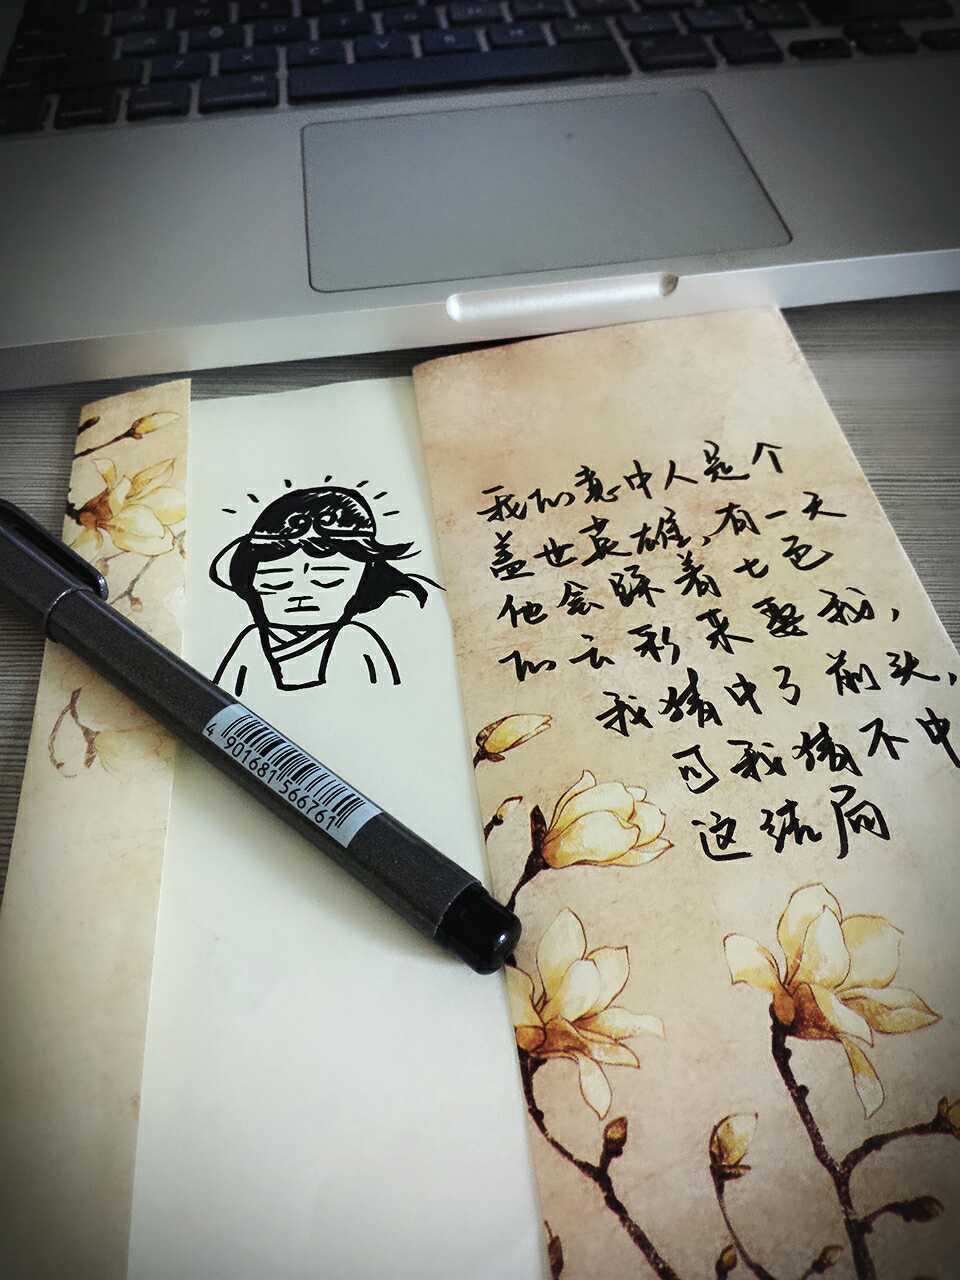 我的意中人是个
盖世英雄，有一天
他会踩着七色
的云彩来娶我，
我猜中了前头，
可我猜不中
这结局
4 901681 566761